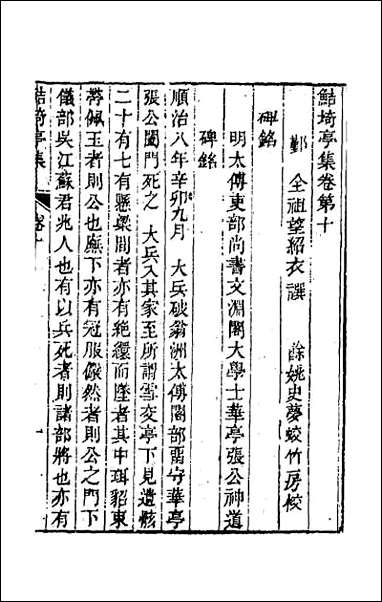 鮚埼亭集卷第十
鄞　全祖望紹衣　譔　　餘姚史夢蛟竹房校
碑銘
明太傅吏部尚書文淵閣大學士華亭張公神道
碑銘
順治八年辛卯九月　大兵破翁洲太傅閣部留守華亭
張公闔門死之　大兵入其家至所謂雪交亭下見遺骸
二十有七有懸梁間者亦有絕繯而墜者其中珥貂束
帶佩玉者則公也廡下亦有冠服儼然者則公之門下
儀部吳江蘇君兆人也有以兵死者則諸部將也亦有
鮚埼亭集